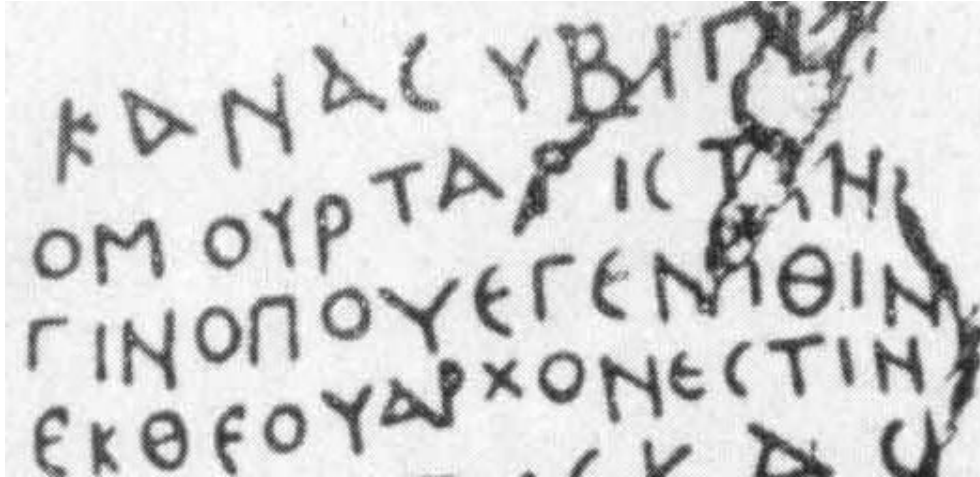 ΚΑΝΑCΥΒΙΓ
ΟΜΟΥΡΤΑΓ ΙCΤΙΝ
ΓΙΝΟΠΟΥΕΓΕΝΙΘΙΝ
ΕΚΘΕΟΥΑΡΧΟΝΕCΤΙΝ